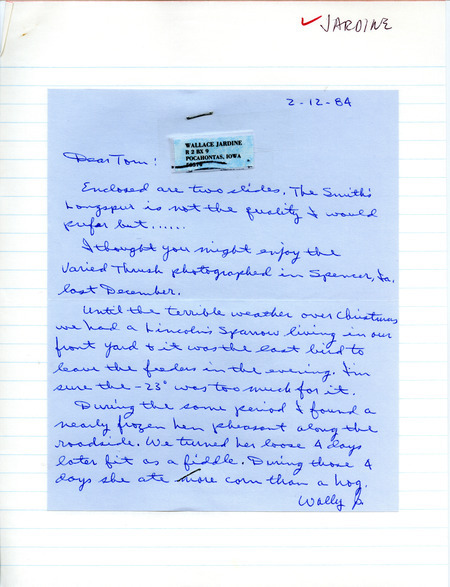 ✓ JARDINE
2-12-84
WALLACE JARDINE
R 2 BX 9
POCAHONTAS, IOWA
50574
Dear Tom:
Enclosed are two slides. The Smith's
Longspur is not the quality I would
prefer but......
I thought you might enjoy the
Varied Thrush photographed in Spencer, Ia.
last December.
Until the terrible weather over Christmas
we had a Lincoln's Sparrow living in our
front yard & it was the last bird to
leave the feeders in the evening. I'm
sure the -23° was too much for it.
During the same period I found a
nearly frozen hen pheasant along the
roadside. We turned her loose 4 days
later fit as a fiddle. During those 4
days she ate more corn than a hog.
Wally J.